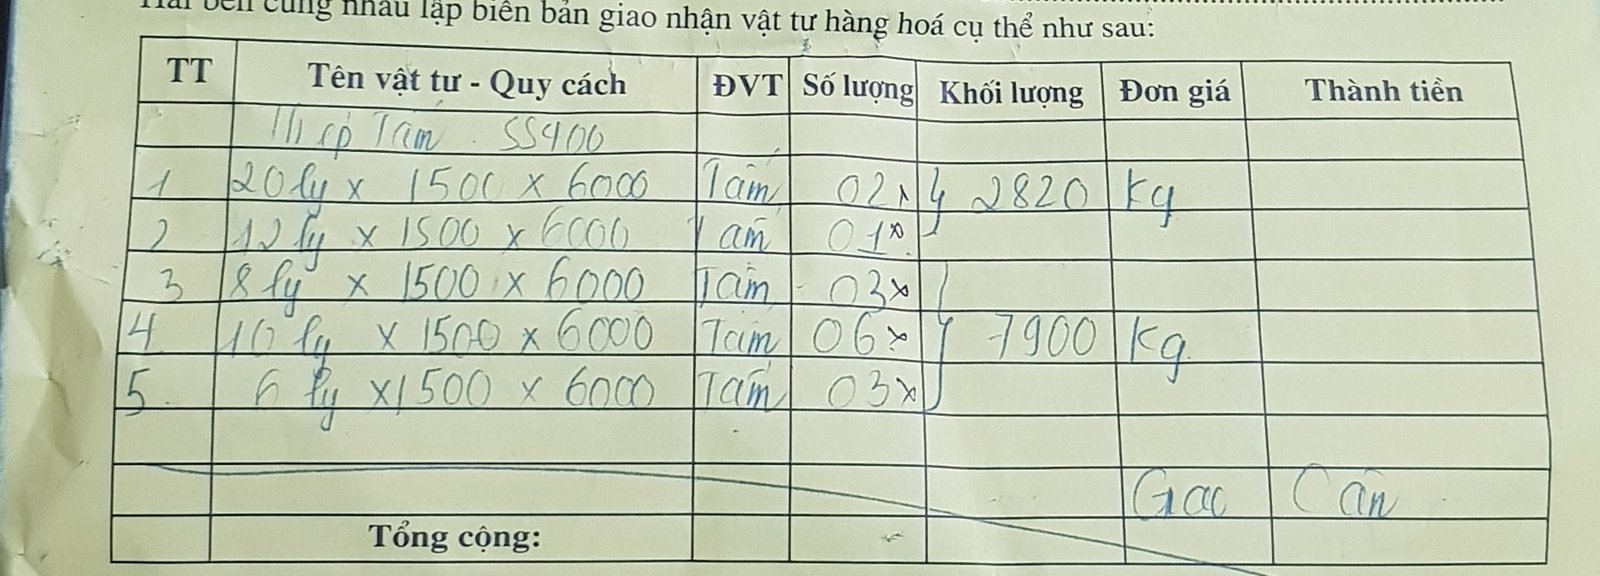 Hai bên cùng nhau lập biên bản giao nhận vật tư hàng hoá cụ thể như sau:
TT Tên vật tư - Quy cách ĐVT Số lượng Khối lượng Đơn giá Thành tiền
Thép Tấm SS400
1 20 ly x 1500 x 6000 Tấm 02 x } 2820 Kg
2 12 ly x 1500 x 6000 Tấm 01 x
3 8 ly x 1500 x 6000 Tấm 03 x
4 10 ly x 1500 x 6000 Tấm 06 x } 7900 Kg
5 6 ly x 1500 x 6000 Tấm 03 x
Giao Cân
Tổng cộng: